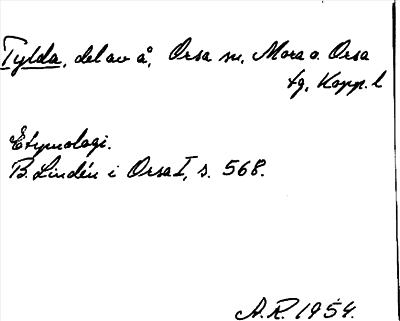 Tylda, del av å, Orsa sn, Mora o. Orsa
tg, Kopp. l
Etymologi.
B. Lindén i Orsa I, s. 568.
A.R. 1954.